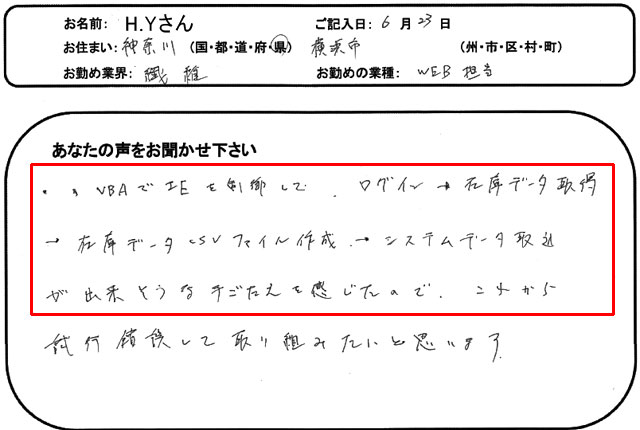 お名前: H.Yさん ご記入日: 6月23日
お住まい: 神奈川 (国・都・道・府・県) 横浜市 (州・市・区・村・町)
お勤め業界: 繊維 お勤めの業種: WEB担当
あなたの声をお聞かせ下さい
・VBAでIEを制御して、ログイン→在庫データ取得
→在庫データCSVファイル作成→システムデータ取込
が出来そうな手ごたえを感じたので、これから
試行錯誤して取り組みたいと思います。